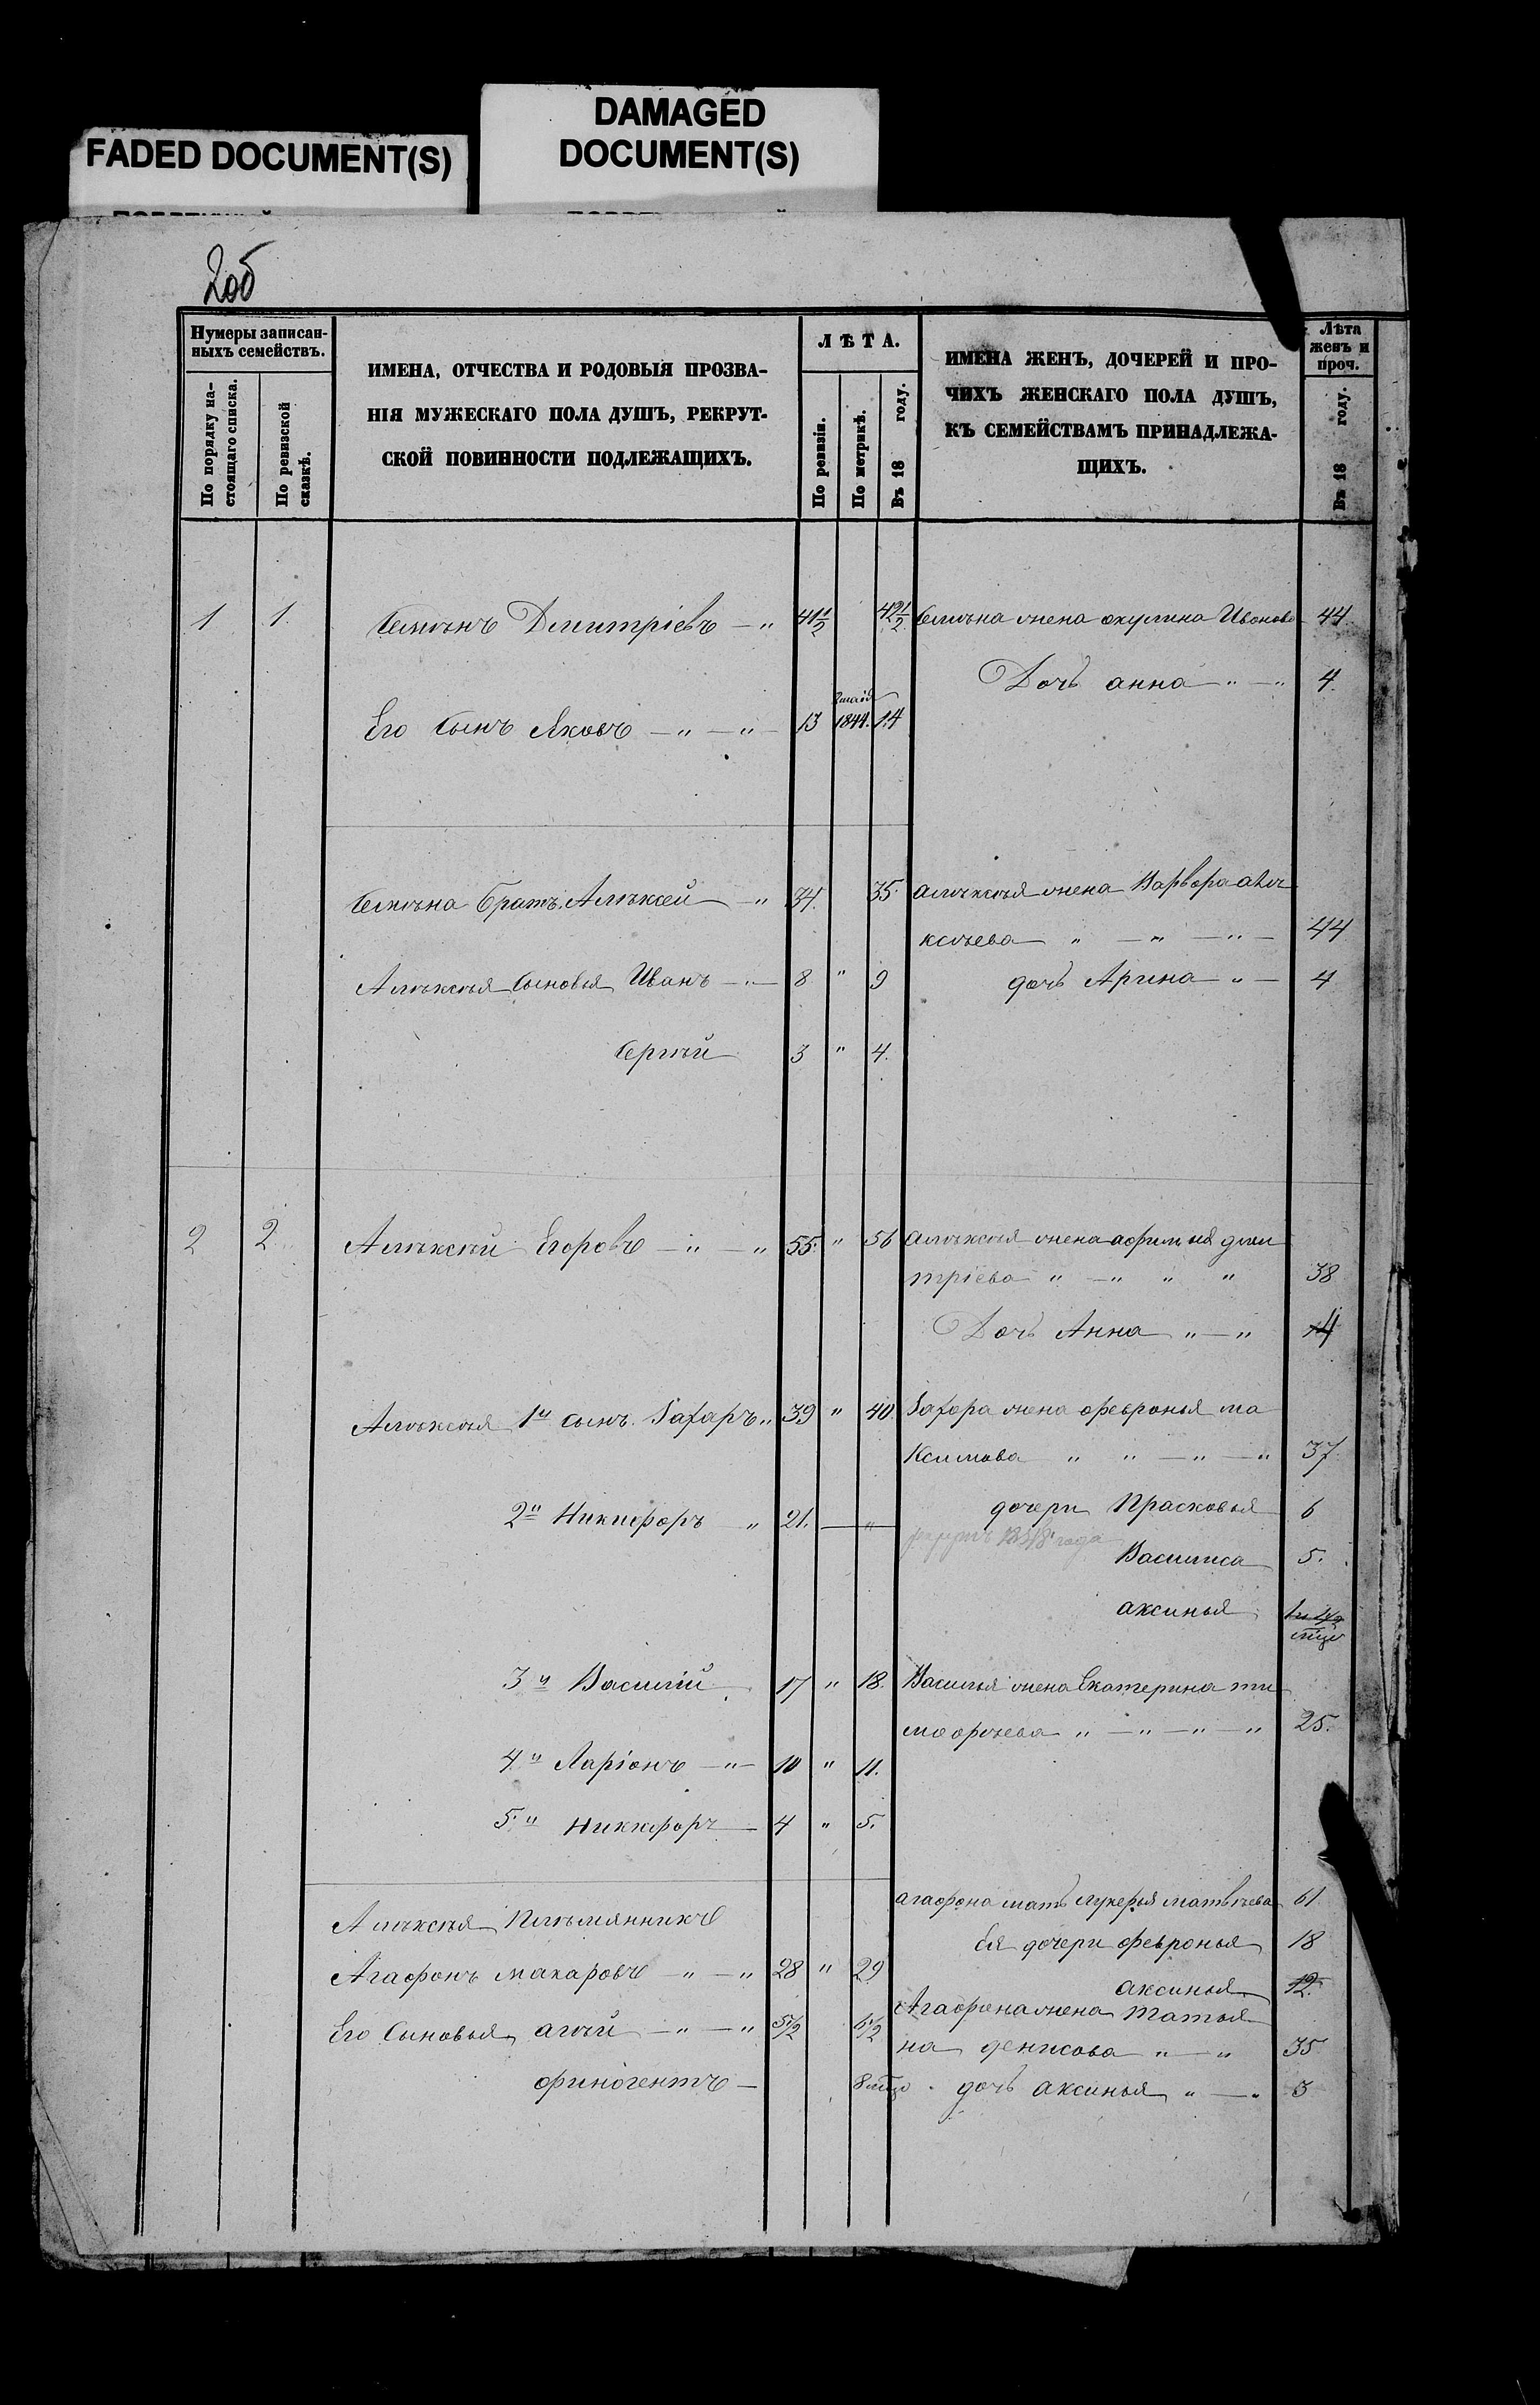 FADED DOCUMENT(S)
DAMAGED
DOCUMENT(S)
2об
Нумеры записан-
ныхъ семействъ.
По порядку на-
стоящаго списка.
По ревизской
сказкѣ.
ИМЕНА, ОТЧЕСТВА И РОДОВЫЯ ПРОЗВА-
НІЯ МУЖЕСКАГО ПОЛА ДУШЪ, РЕКРУТ-
СКОЙ ПОВИННОСТИ ПОДЛЕЖАЩИХЪ.
ЛѢТА.
По ревизіи.
По метрикѣ.
Въ 18 году.
ИМЕНА ЖЕНЪ, ДОЧЕРЕЙ И ПРО-
ЧИХЪ ЖЕНСКАГО ПОЛА ДУШЪ,
КЪ СЕМЕЙСТВАМЪ ПРИНАДЛЕЖА-
ЩИХЪ.
Лѣта
женъ и
проч.
Въ 18 году.
1 1. Семѣнъ Дмитріевъ — " 41 1/2 42 1/2 Семѣна жена окулина Иванова 44.
Дочь анна " — " 4.
Его Сынъ Яковъ — " — " — 13 1844. 14
Семѣна Братъ Алѣксей — " 34. 35. алѣксѣя жена Варвора алѣ
ксѣева " — " — " — 44
Алѣксѣя Сыновья Иванъ — " — 8 " 9 дочь Арина — " — 4
Сергѣй 3 " 4.
2 2 Алѣксѣй Егоровъ — " — " 55. " 56 алѣксѣя жена афимья дми
тріева " — " " " 38
Дочь Анна " — " 14
Алѣксѣя 1й сынъ Захаръ " 39 " 40. Захора жена февронья ма
ксимова " " — " — " 37.
2й Никифоръ " 21. — " — дочери Прасковья 6
года
Василиса 5.
аксинья
3й Василій 17 " 18. Василья жена Екатерина ти
мофѣева " — " — " — " 25.
4й Ларіонъ — " — 10 " 11.
5й Никифоръ — 4 " 5.
агафона мать лукерья матвѣева 61
Алѣксѣя Племянникъ
Ея дочери февронья 18
Агафонъ макаровъ — " — " 28 " 29
аксинья 12.
Агафона жена Татья
Его Сыновья агѣй — " — " 5 1/2 6 1/2
на денисова " — " 35
финогентъ — 8 мцо дочь аксинья " — " 3